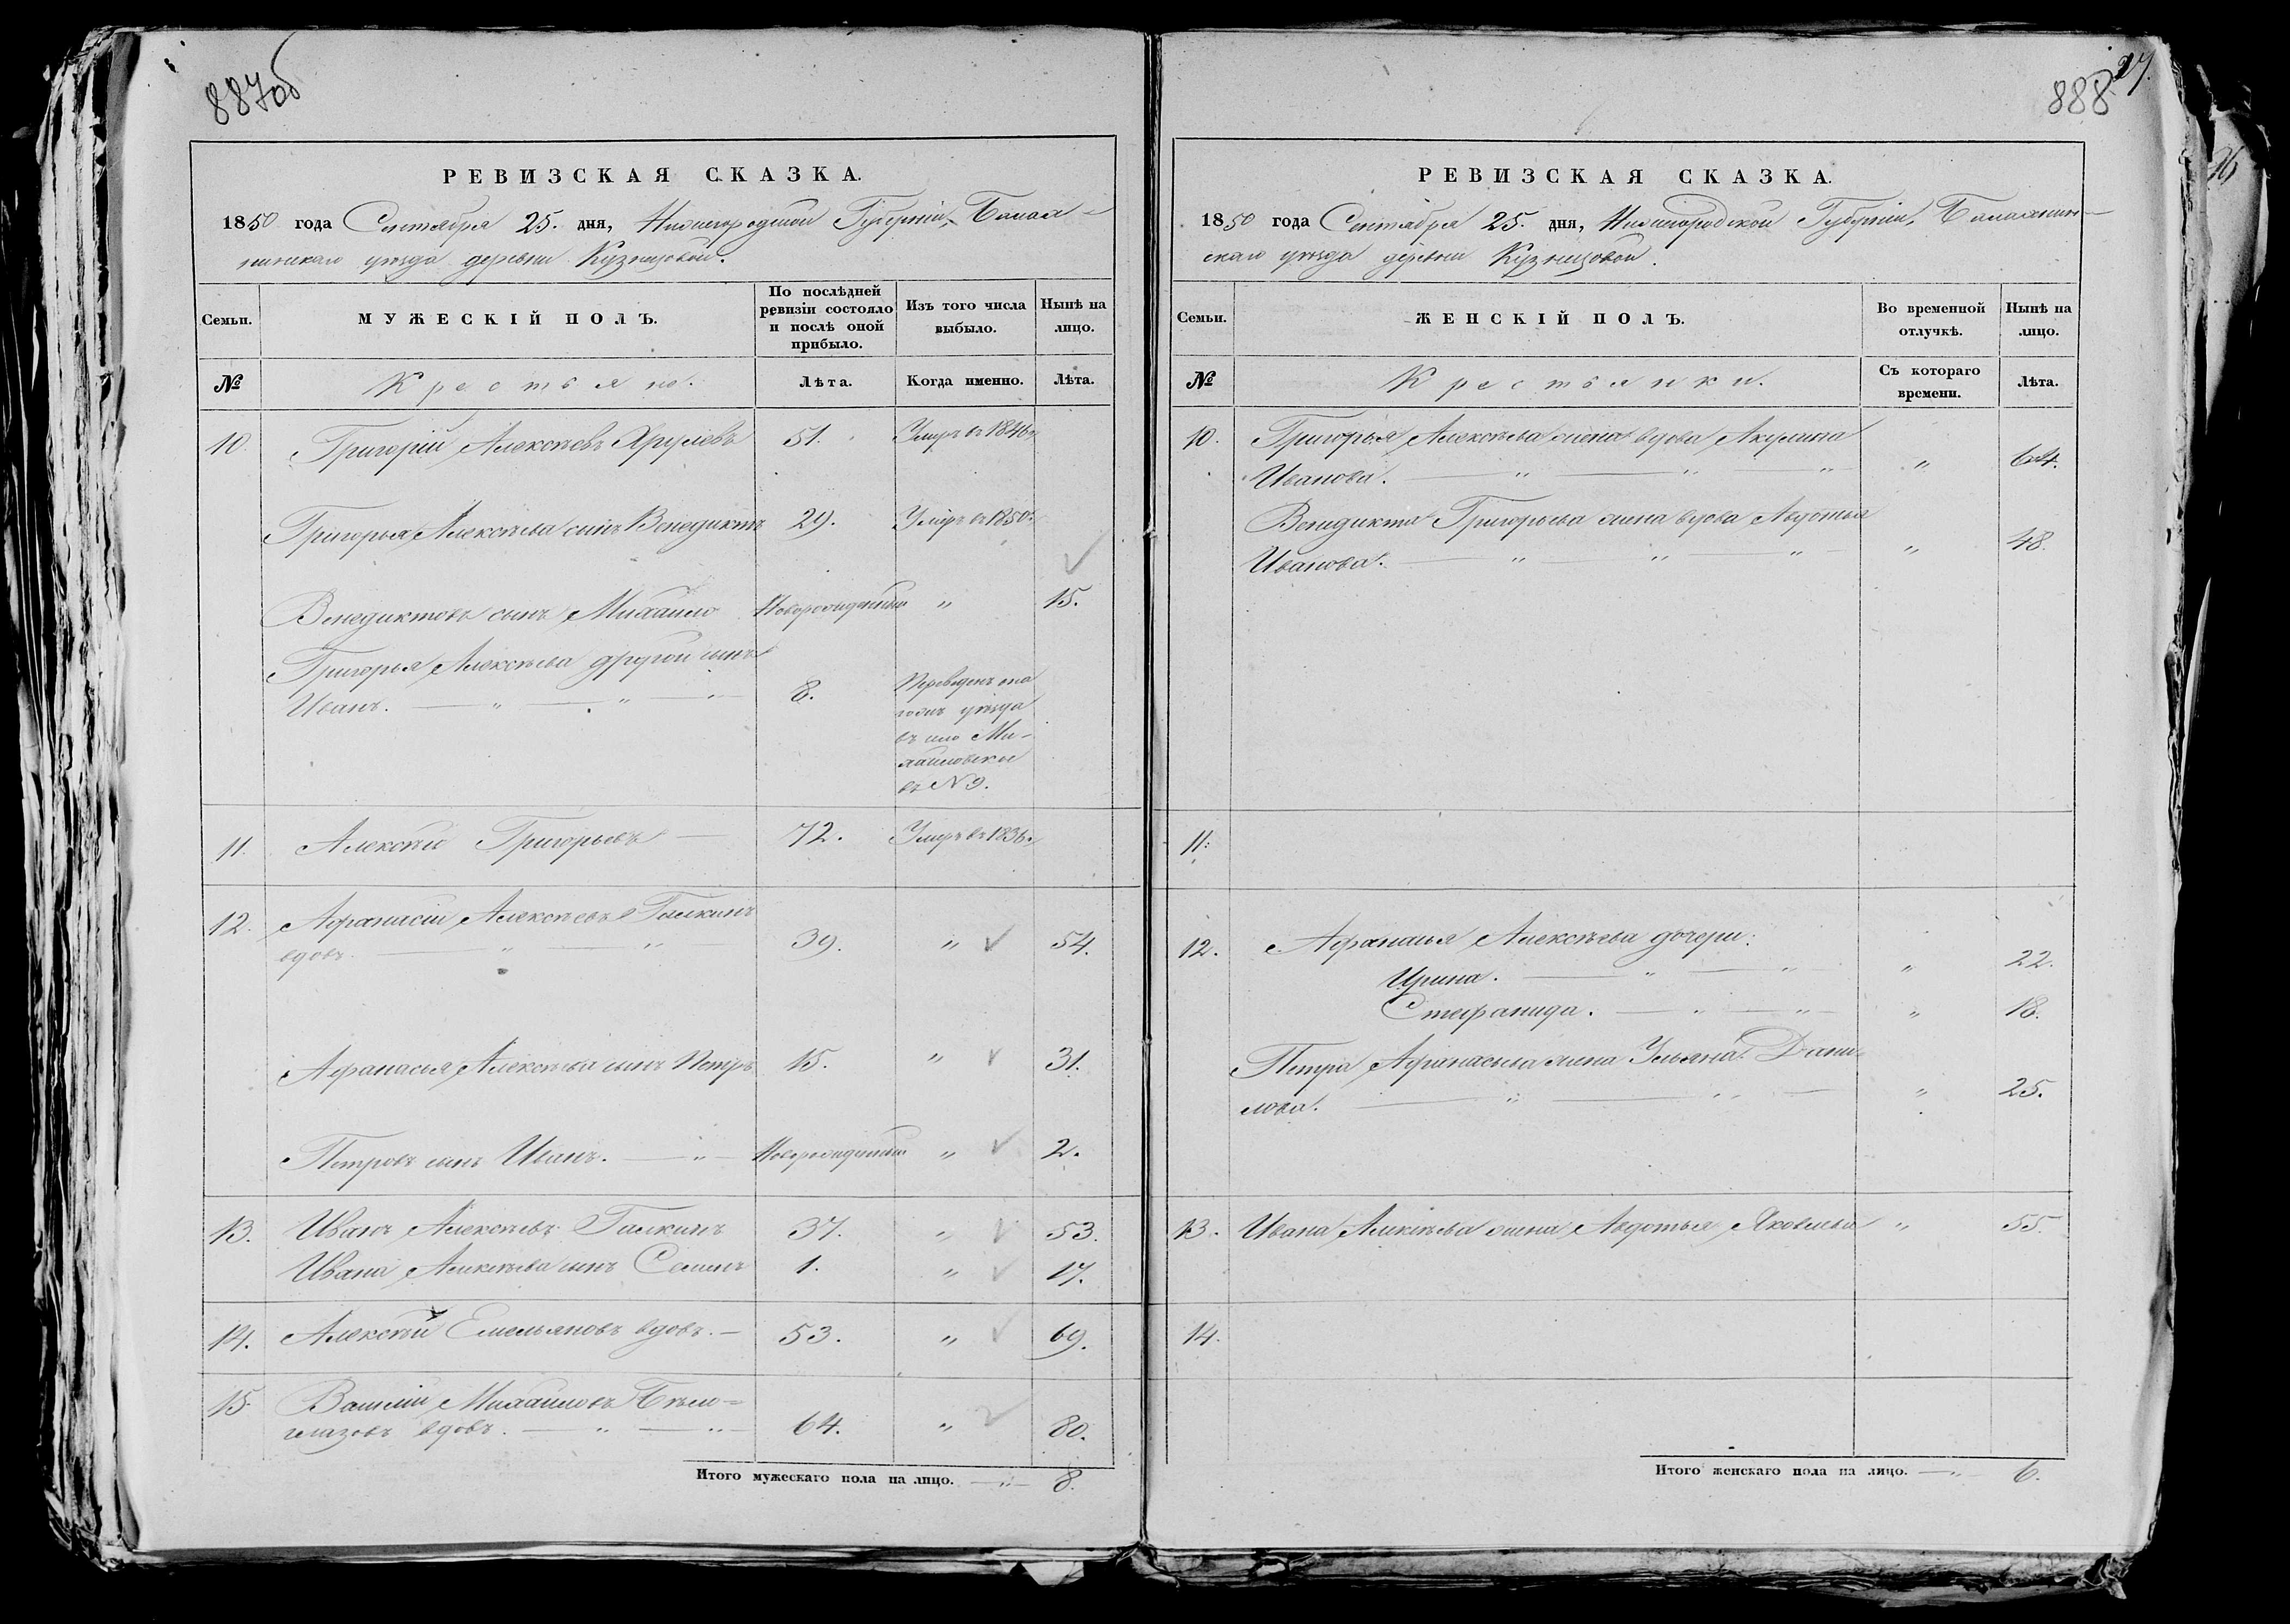 887об
РЕВИЗСКАЯ СКАЗКА.
1850 года Сентября 25. дня, Нижегородской Губерніи, Балах-
нинскаго уѣзда деревни Кузнецовой.
Семьи.
МУЖЕСКІЙ ПОЛЪ.
По послѣдней ревизіи состояло и послѣ оной прибыло.
Изъ того числа выбыло.
Нынѣ на лицо.
№
Крестьяне.
Лѣта.
Когда именно.
Лѣта.
10. Григорій Алексѣевъ Хрулевъ 51. Умеръ въ 1846
Григорья Алексѣева сынъ Венедиктъ 29. Умеръ въ 1850
Венедиктовъ сынъ Михайло Новорожденный " 15.
Григорья Алексѣева другой сынъ
Иванъ. — " — " 8.
Переведенъ
уѣзда
въ Ми-
хайловское
въ № 9.
11. Алексѣй Григорьевъ — 72. Умеръ въ 1836
12. Афанасій Алексѣевъ Галкинъ
вдовъ. — " — " 39. " 54.
Афанасья Алексѣева сынъ Петръ 15. " 31.
Петровъ сынъ Иванъ. — " — Новорожденный " 2.
13. Иванъ Алексѣевъ Галкинъ 37. " 53.
Ивана Алексѣева сынъ Семенъ 1. " 17.
14. Алексѣй Емельяновъ вдовъ. — 53. " 69.
15. Василій Михайловъ Бѣло-
глазовъ вдовъ. — " — " 64. " 80.
Итого мужескаго пола на лицо. — " — 8.
888
27.
РЕВИЗСКАЯ СКАЗКА.
1850 года Сентября 25. дня, Нижегородской Губерніи, Балахнин-
скаго уѣзда деревни Кузнецовой.
Семьи.
ЖЕНСКІЙ ПОЛЪ.
Во временной отлучкѣ.
Нынѣ на лицо.
№
Крестьянки.
Съ котораго времени.
Лѣта.
10. Григорья Алексѣева жена вдова Акулина
Иванова. — " — " — " " 64.
Венедикта Григорьева жена вдова Авдотья
Иванова. — " — " — " " 48.
11.
12. Афанасья Алексѣева дочери:
Ирина. — " — " " 22.
Стефанида. — " — " " 18.
Петра Афанасьева жена Ульяна Дани-
лова. — " — " " 25.
13. Ивана Алексѣева жена Авдотья Яковлева " 55.
14.
Итого женскаго пола на лицо. — " — 6.